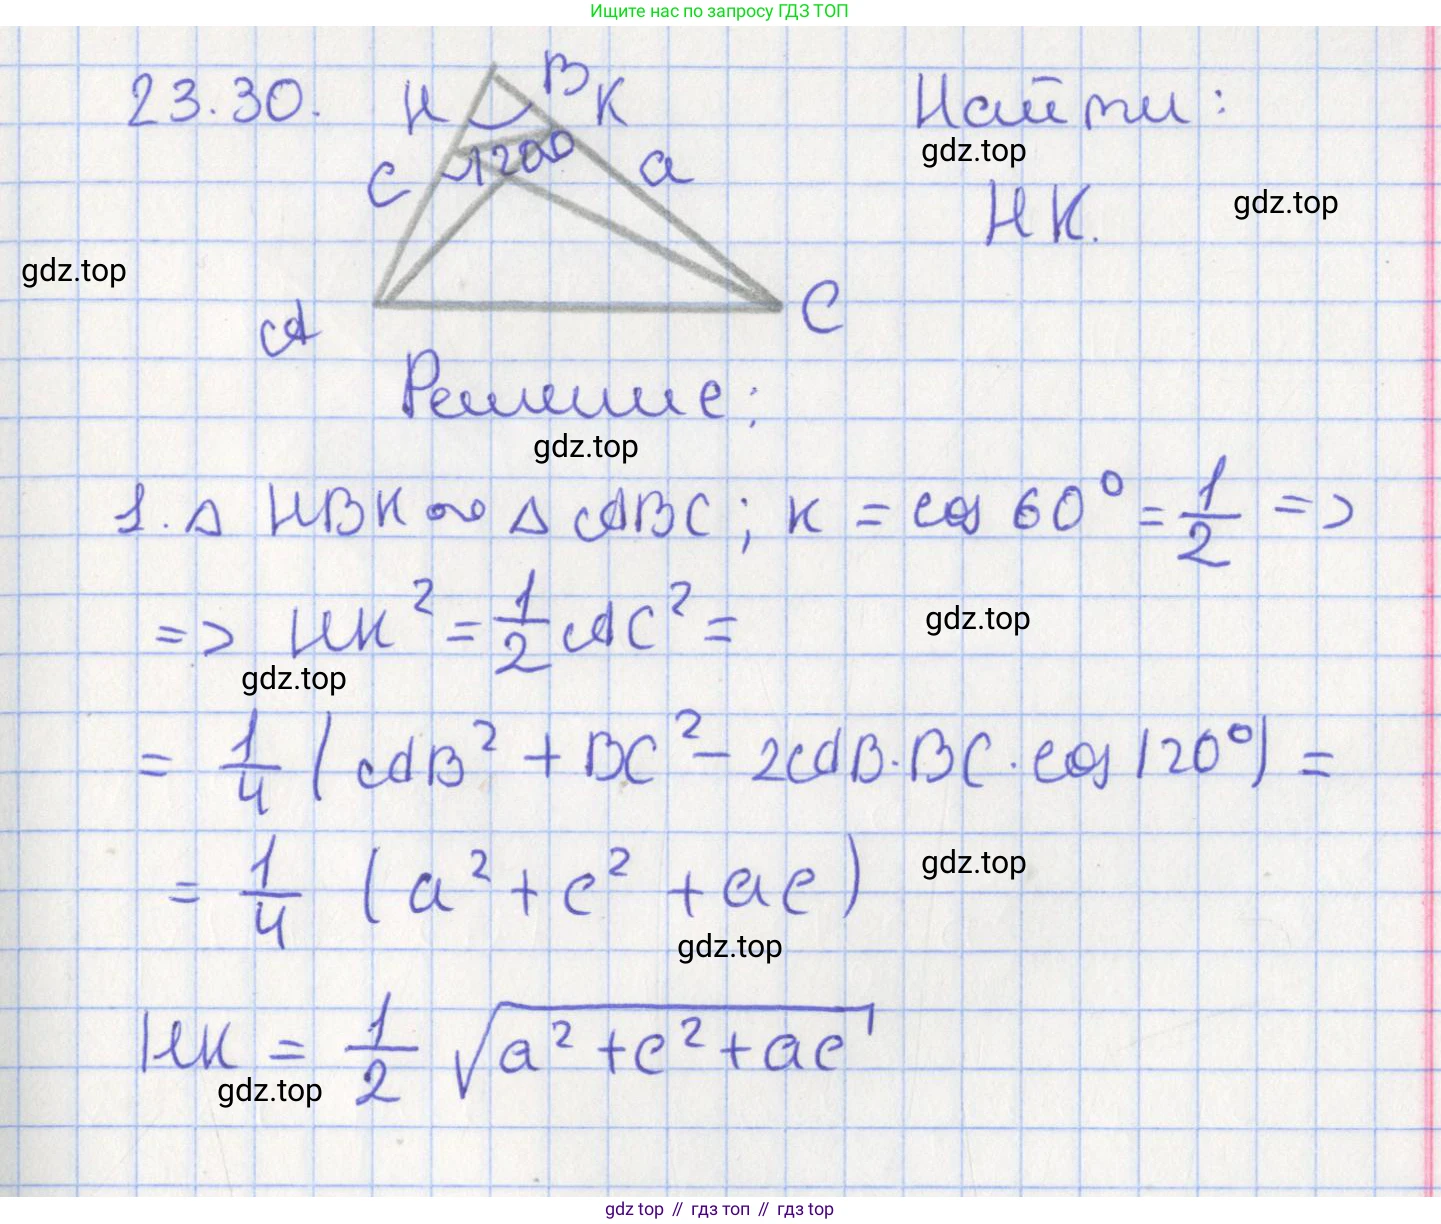 Ищите нас по запросу ГДЗ ТОП
23.30.
H
B
K
Найти:
gdz.top
120°
c
a
HK.
gdz.top
gdz.top
A
C
Решение:
gdz.top
1. △ HBK ∾ △ ABC; к = cos 60° = 1/2 =>
=> HK² = 1/2 AC² =
gdz.top
gdz.top
= 1/4 (AB² + BC² - 2AB·BC·cos 120°) =
= 1/4 (a² + c² + ac)
gdz.top
gdz.top
HK = 1/2 √(a² + c² + ac)
gdz.top
gdz top // гдз топ // гдз top